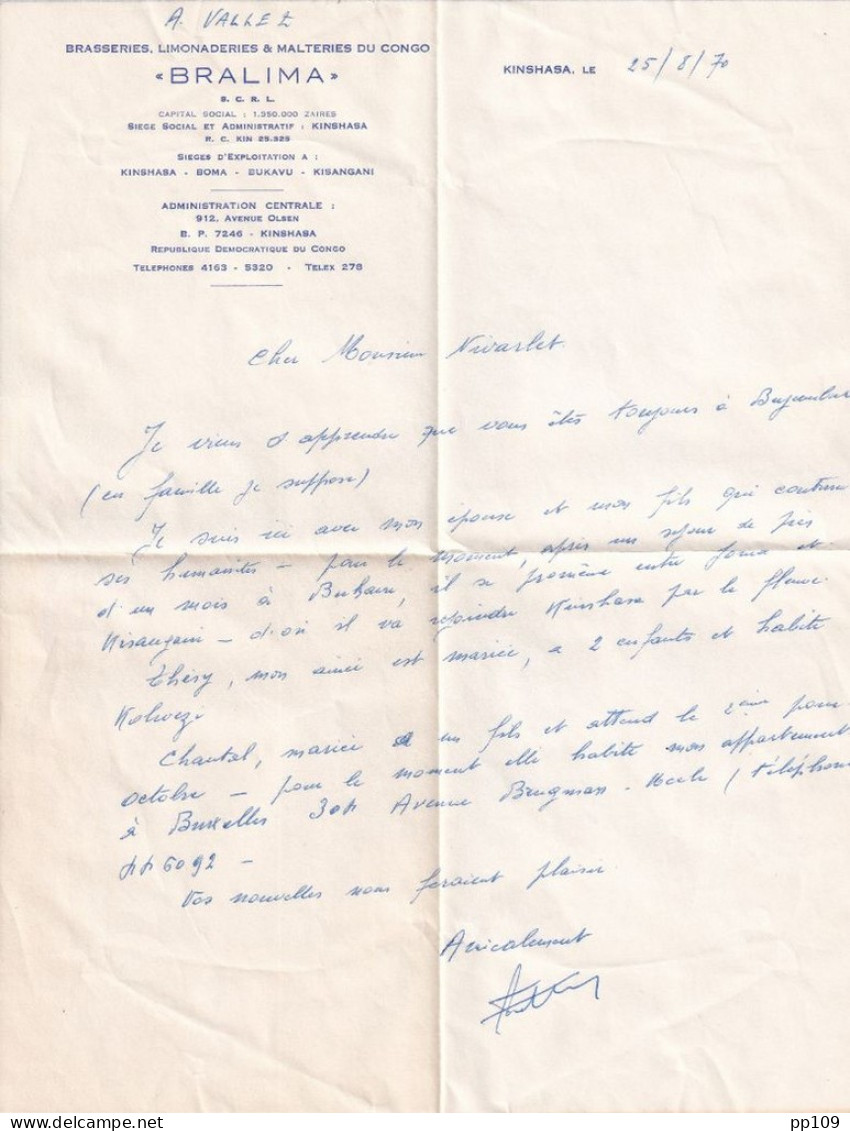 A. VALLEZ
BRASSERIES, LIMONADERIES & MALTERIES DU CONGO
«BRALIMA»
S. C. R. L.
CAPITAL SOCIAL : 1.950.000 ZAIRES
SIEGE SOCIAL ET ADMINISTRATIF : KINSHASA
R. C. KIN 25.325
SIEGES D'EXPLOITATION A :
KINSHASA - BOMA - BUKAVU - KISANGANI
ADMINISTRATION CENTRALE :
912, AVENUE OLSEN
B. P. 7246 - KINSHASA
REPUBLIQUE DEMOCRATIQUE DU CONGO
TELEPHONES 4163 - 5320 - TELEX 278
KINSHASA, LE 25/8/70
Cher Monsieur Nivarlet.
Je viens d'apprendre que vous êtes toujours à Bujumbura
(en famille je suppose)
Je suis ici avec mon épouse et mon fils qui continue
ses humanités - pour le moment, après un séjour de près
d'un mois à Bukavu, il se promène entre Goma et
Kisangani - d'où il va rejoindre Kinshasa par le fleuve.
Thésy, mon ainée est mariée, a 2 enfants et habite
Kolwezi
Chantal, mariée a un fils et attend le 2ème pour
octobre - pour le moment elle habite mon appartement
à Bruxelles 304 Avenue Brugman - Uccle (téléphone
446092 -
Vos nouvelles nous feraient plaisir.
Amicalement
pp109